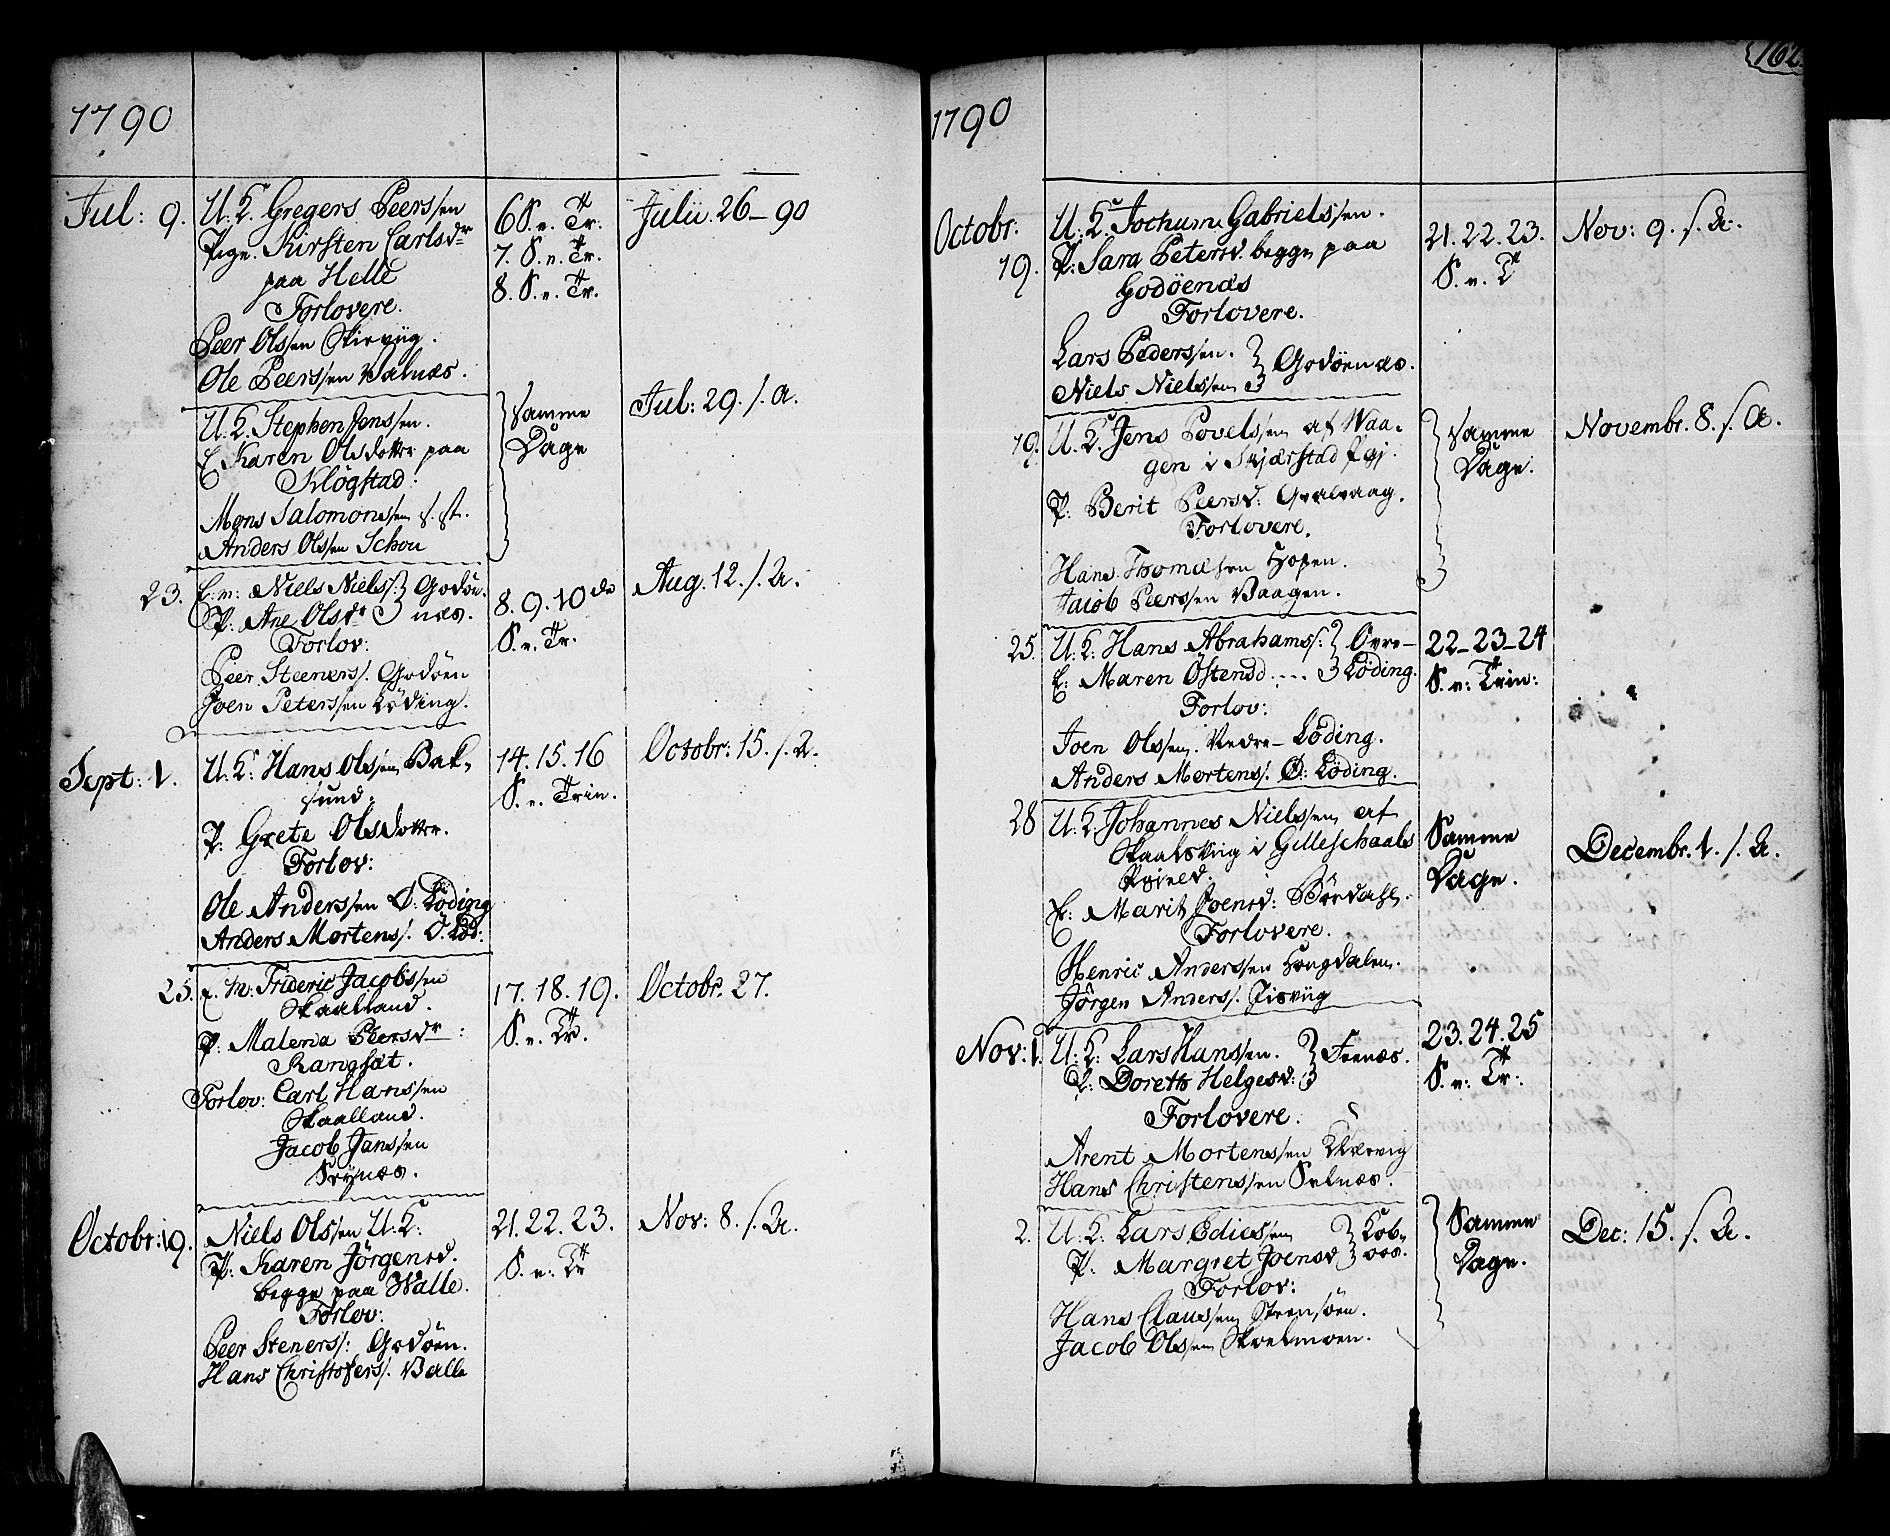 1790
Jul: 9. U. K. Gregers Peerssen
Pige. Kirsten Carlsdr
paa Helle
Forlovere.
Peer Olssen Skirviig.
Ole Peerssen Valnæs.
6 S. e. Tr.
7. S. e. Tr.
8. S. e. Tr.
Julii. 26 – 90
U. K. Stephen Jonssen.
E Karen Olsdotter paa
Kløgstad:
Mons Salomonssen s. st.
Anders Olssen Schou
Samme
Dage
Jul: 29. s. A.
23. E: m: Niels Niels: Godøe
P: Ane Olsdr næs.
Forlov:
Peer Steeners. Godøen
Joen Peterssen Løding.
8. 9. 10de
S. e. Tr.
Aug. 12. s. A.
Sept: 1. U. K: Hans Olssen Bak-
sund.
P: Grete Olsdotter.
Forlov:
Ole Anderssen Ø: Løding
Anders Mortens. Ö. Lød:
14. 15. 16
S. e. Trin.
Octobr: 15. s. A.
25. E. M: Frideric Jacobssen
Skaalland.
P: Malena Peersdr:
Kangsat.
Forlov: Carl Hanssen
Skaalland.
Jacob Janssen
Seÿnæs.
17. 18. 19.
S. e. Tr.
Octobr. 27.
Octobr: 19. Niels Olssen U. K:
P: Karen Jörgensd.
begge paa Walle.
Forlov:
Peer Steners: Godøen.
Hans Christofers. Valle
21. 22. 23.
S. e. Tr
Nov: 8. s. A.
162.
1790
Octobr.
19. U. K. Jochum Gabrielssen.
P: Sara Petersd. begge paa
Godöenæs
Forlovere.
Lars Pederssen.
Niels Nielssen Godøenæs.
21. 22. 23.
S. e. T
Nov: 9. s. A.
19. U. K. Jens Povelssen af Waa-
gen i Skjærstad Pgj.
P: Berit Peersd: Qvalvaag.
Forlovere.
Hans Thomæsen Hopen.
Jacob Peerssen Vaagen.
Samme
Dage.
Novembr. 8. s. A.
25. U. K: Hans Abrahams: Øvre-
E: Maren Östensd .... Löding.
Forlov:
Joen Olssen. Nedre- Löding.
Anders Mortens. Ø: Löding.
22–23–24
S. e: Trin:
28 U. K. Johannes Nielssen af
Skaalsviig i Gilleschaals
E: Marit Joensd: Børdahl.
Forlovere.
Henric Anderssen Hougdalen.
Jørgen Anders.
Samme
Dage.
Decembr. 1. s. A.
Nov: 1. U. K: Lars Hanssen. Feenæs.
P: Doreth Helgesd:
Forlovere.
Arent Mortenssen
Hans Christenssen Seenæs.
23. 24. 25
S. e: Tr:.
2. U. K. Lars Ediessen Løb-
P: Margret Joensd aas.
Forlov:
Hans Claussen Steensøen.
Jacob Olssen Skoelmoen.
Samme
Dage.
Dec: 15. s. A.